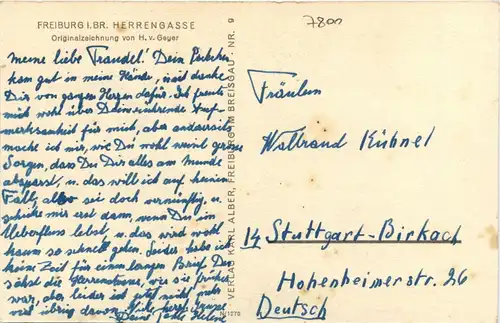 FREIBURG I. BR. HERRENGASSE
Originalzeichnung von H. v. Geyer
7800
meine liebe Traudel! Dein Päckchen
kam gut in meine Hände, und danke
Dir von ganzen Herzen dafür. Ich freute
mich sehr über Deine rührende Auf-
merksamkeit für mich, aber andererseits
mache ich mir, wie Du wohl
Sorgen, dass Du Dir alles am Munde
absparst, u. das will ich auf keinen
Fall, also sei doch vernünftig, u.
schicke mir erst dann, wenn Du im
Ueberfluss lebst, u. das wird wohl
kaum so schnell gehen. Leider habe ich
keine Zeit für einen langen Brief. Da
siehst die Herrenstrasse, wie sie früher
war, aber leider ist jetzt nicht mehr
viel übrig davon
Deine Tante
VERLAG KARL ALBER, FREIBURG IM BREISGAU · NR. 9
N 1270
Fräulein
Waltraud Kühnel
14 Stuttgart-Birkach
Hohenheimerstr. 26
Deutsch